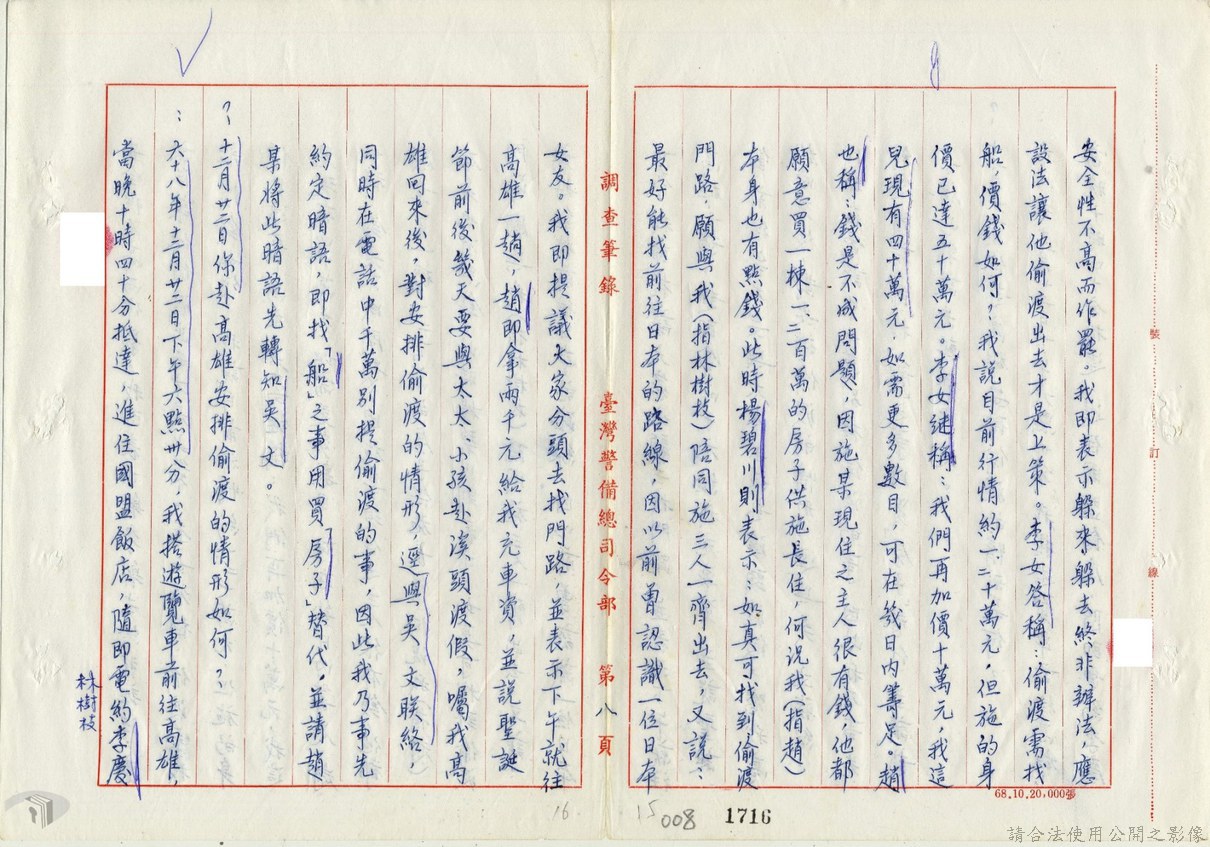 安全性不高而作罷。我即表示躲來躲去終非辦法，應
設法讓他偷渡出去才是上策。李女答稱：偷渡需找
船，價錢如何？我説目前行情約一、二十萬元，但施的身
價已達五十萬元。李女继稱：我們再加價十萬元，我這
兒現有四十萬元，如需更多數目，可在幾日内籌足。趙
也稱：錢是不成問題，因施某現住之主人很有錢，他都
願意買一棟一、二百萬的房子供施長住，何況我（指趙）
本身也有點錢。此時楊碧川則表示：如真可找到偷渡
門路，願與我（指林樹枝）陪同施三人一齊出去，又說：
最好能找前往日本的路線，因以前曾認識一位日本
調查筆錄　臺灣警備總司令部　第八頁
女友。我即提議大家分頭去找門路，並表示下午就往
高雄一趟，趙即拿兩千元給我充車資，並説聖誕
節前後幾天要與太太、小孩赴溪頭渡假，囑我高
雄回來後，對安排偷渡的情形，逕與吳文聯絡，
同時在電話中千萬别提偷渡的事，因此我乃事先
約定暗語，即找「船」之事用買「房子」替代，並請趙
某將此暗語先轉知吳文。
？十二月廿二日你赴高雄安排偷渡的情形如何？
：六十八年十二月廿二日下午六點卅分，我搭遊覽車前往高雄，
當晚十時四十分抵達，進住國盟飯店，隨即電約李慶
林樹枝
裝
訂
線
68.10.20,000張
16
15
008
1716
請合法使用公開之影像